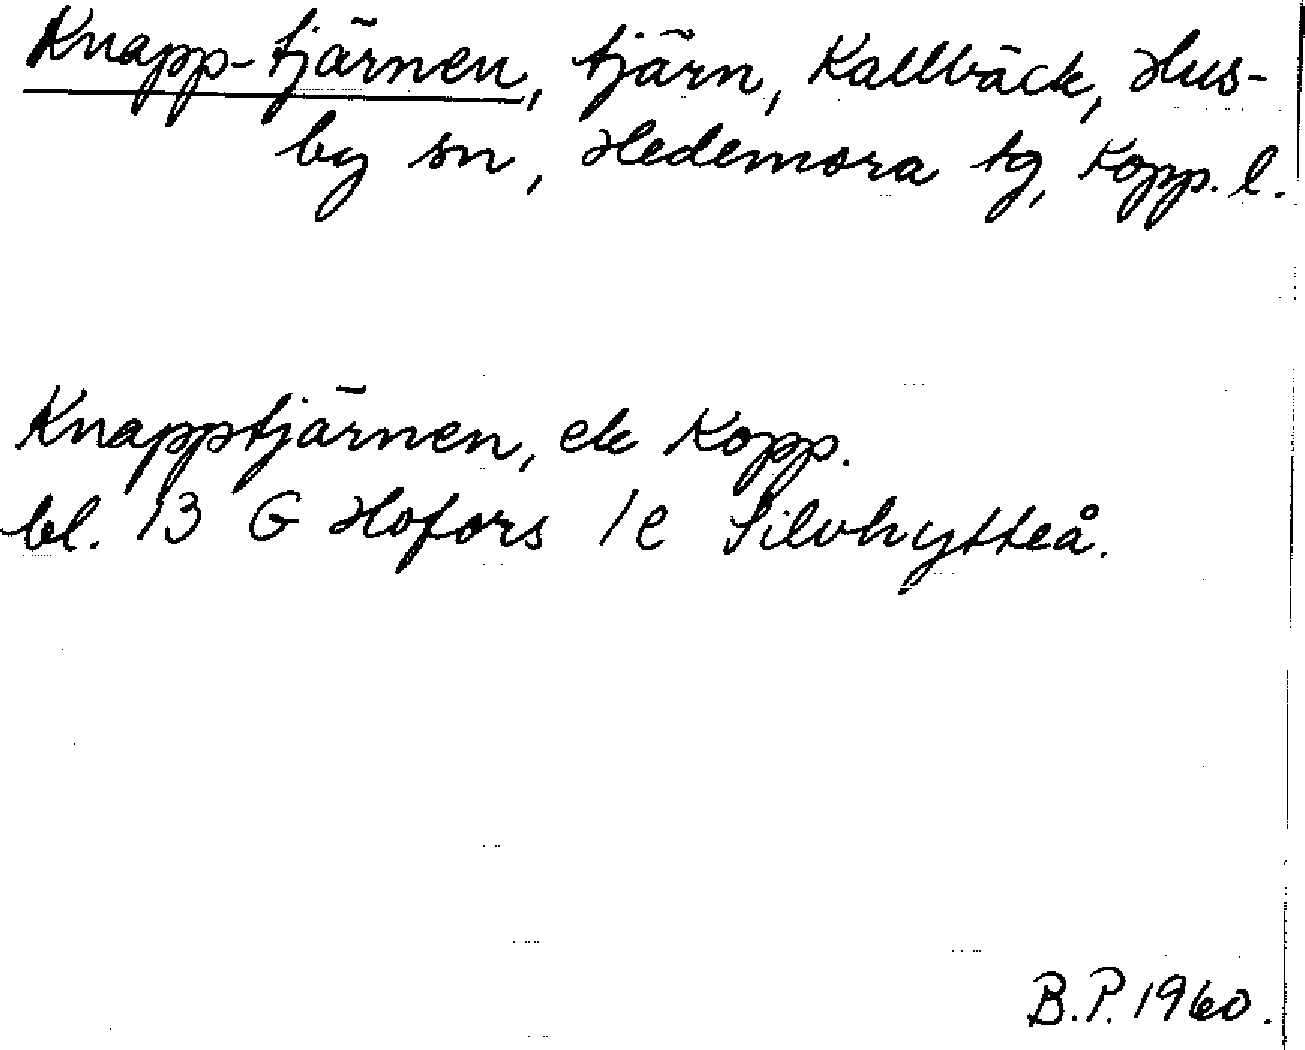 Knapp-tjärnen, tjärn, Kallbäck, Hus-
by sn, Hedemora tg, Kopp. l.
Knapptjärnen, ek Kopp.
bl. 13 G Hofors 1 e Silvhytteå.
B.P. 1960.